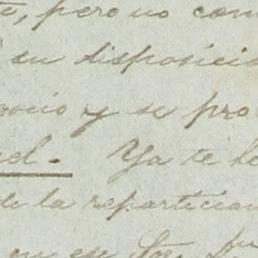 , pero no com
su disposici
ocio y se pro
el. Ya te he
de la reparticion
en ese